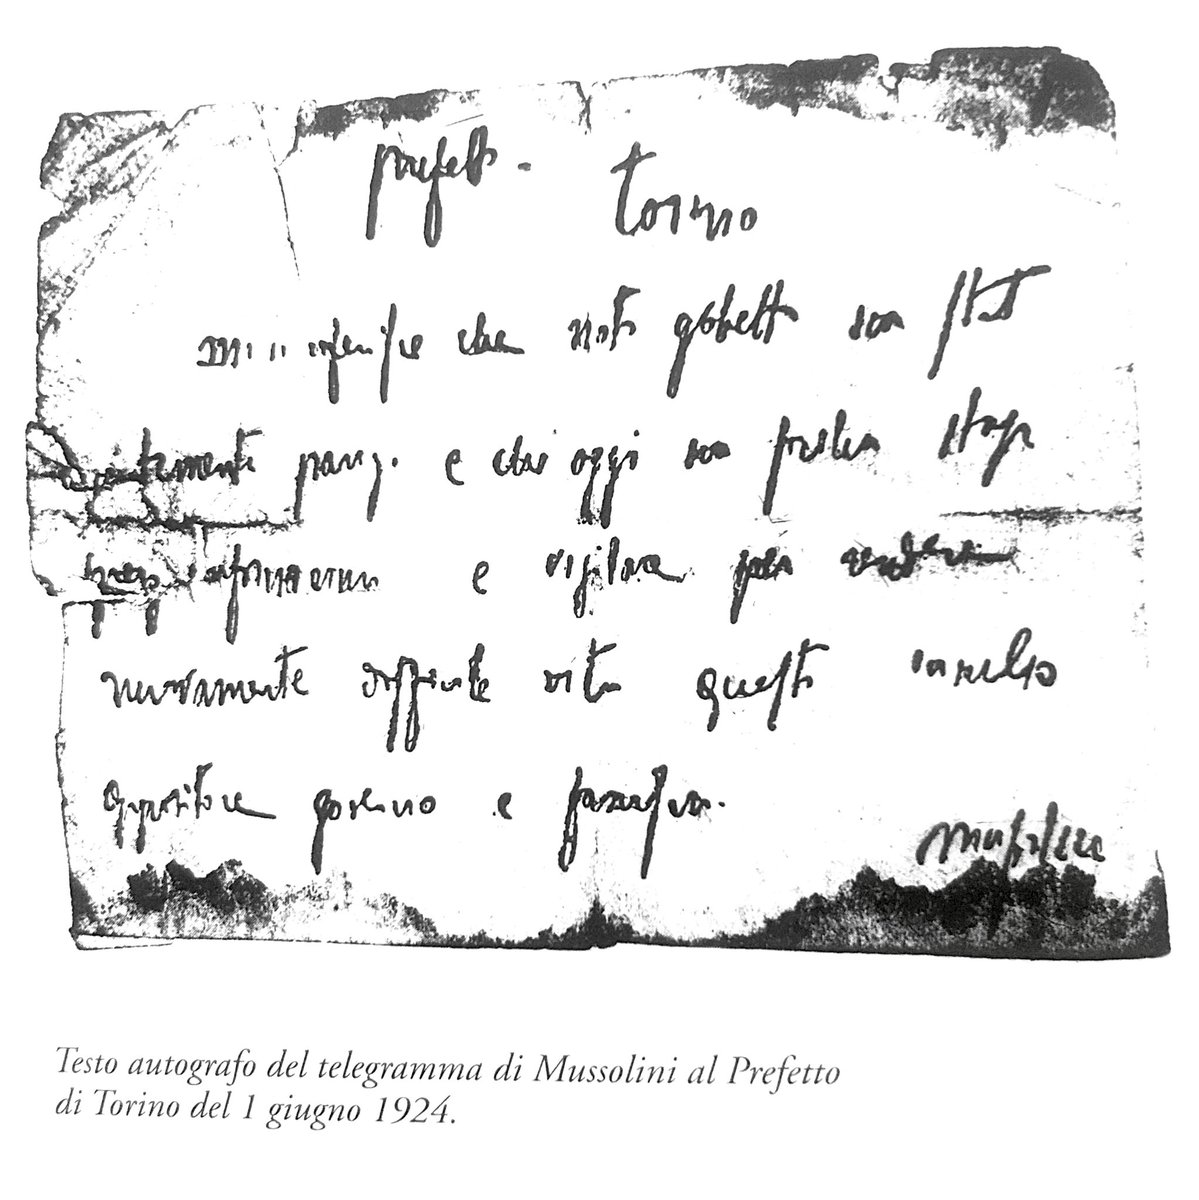 prefetto - torino
mi si riferisce che noto gobetti sia stato
recentemente parigi e che oggi sia stop
prego informarmi e vigilare per rendere
nuovamente difficile vita questo insulso
oppositore governo e fascismo.
Mussolini
Testo autografo del telegramma di Mussolini al Prefetto
di Torino del 1 giugno 1924.